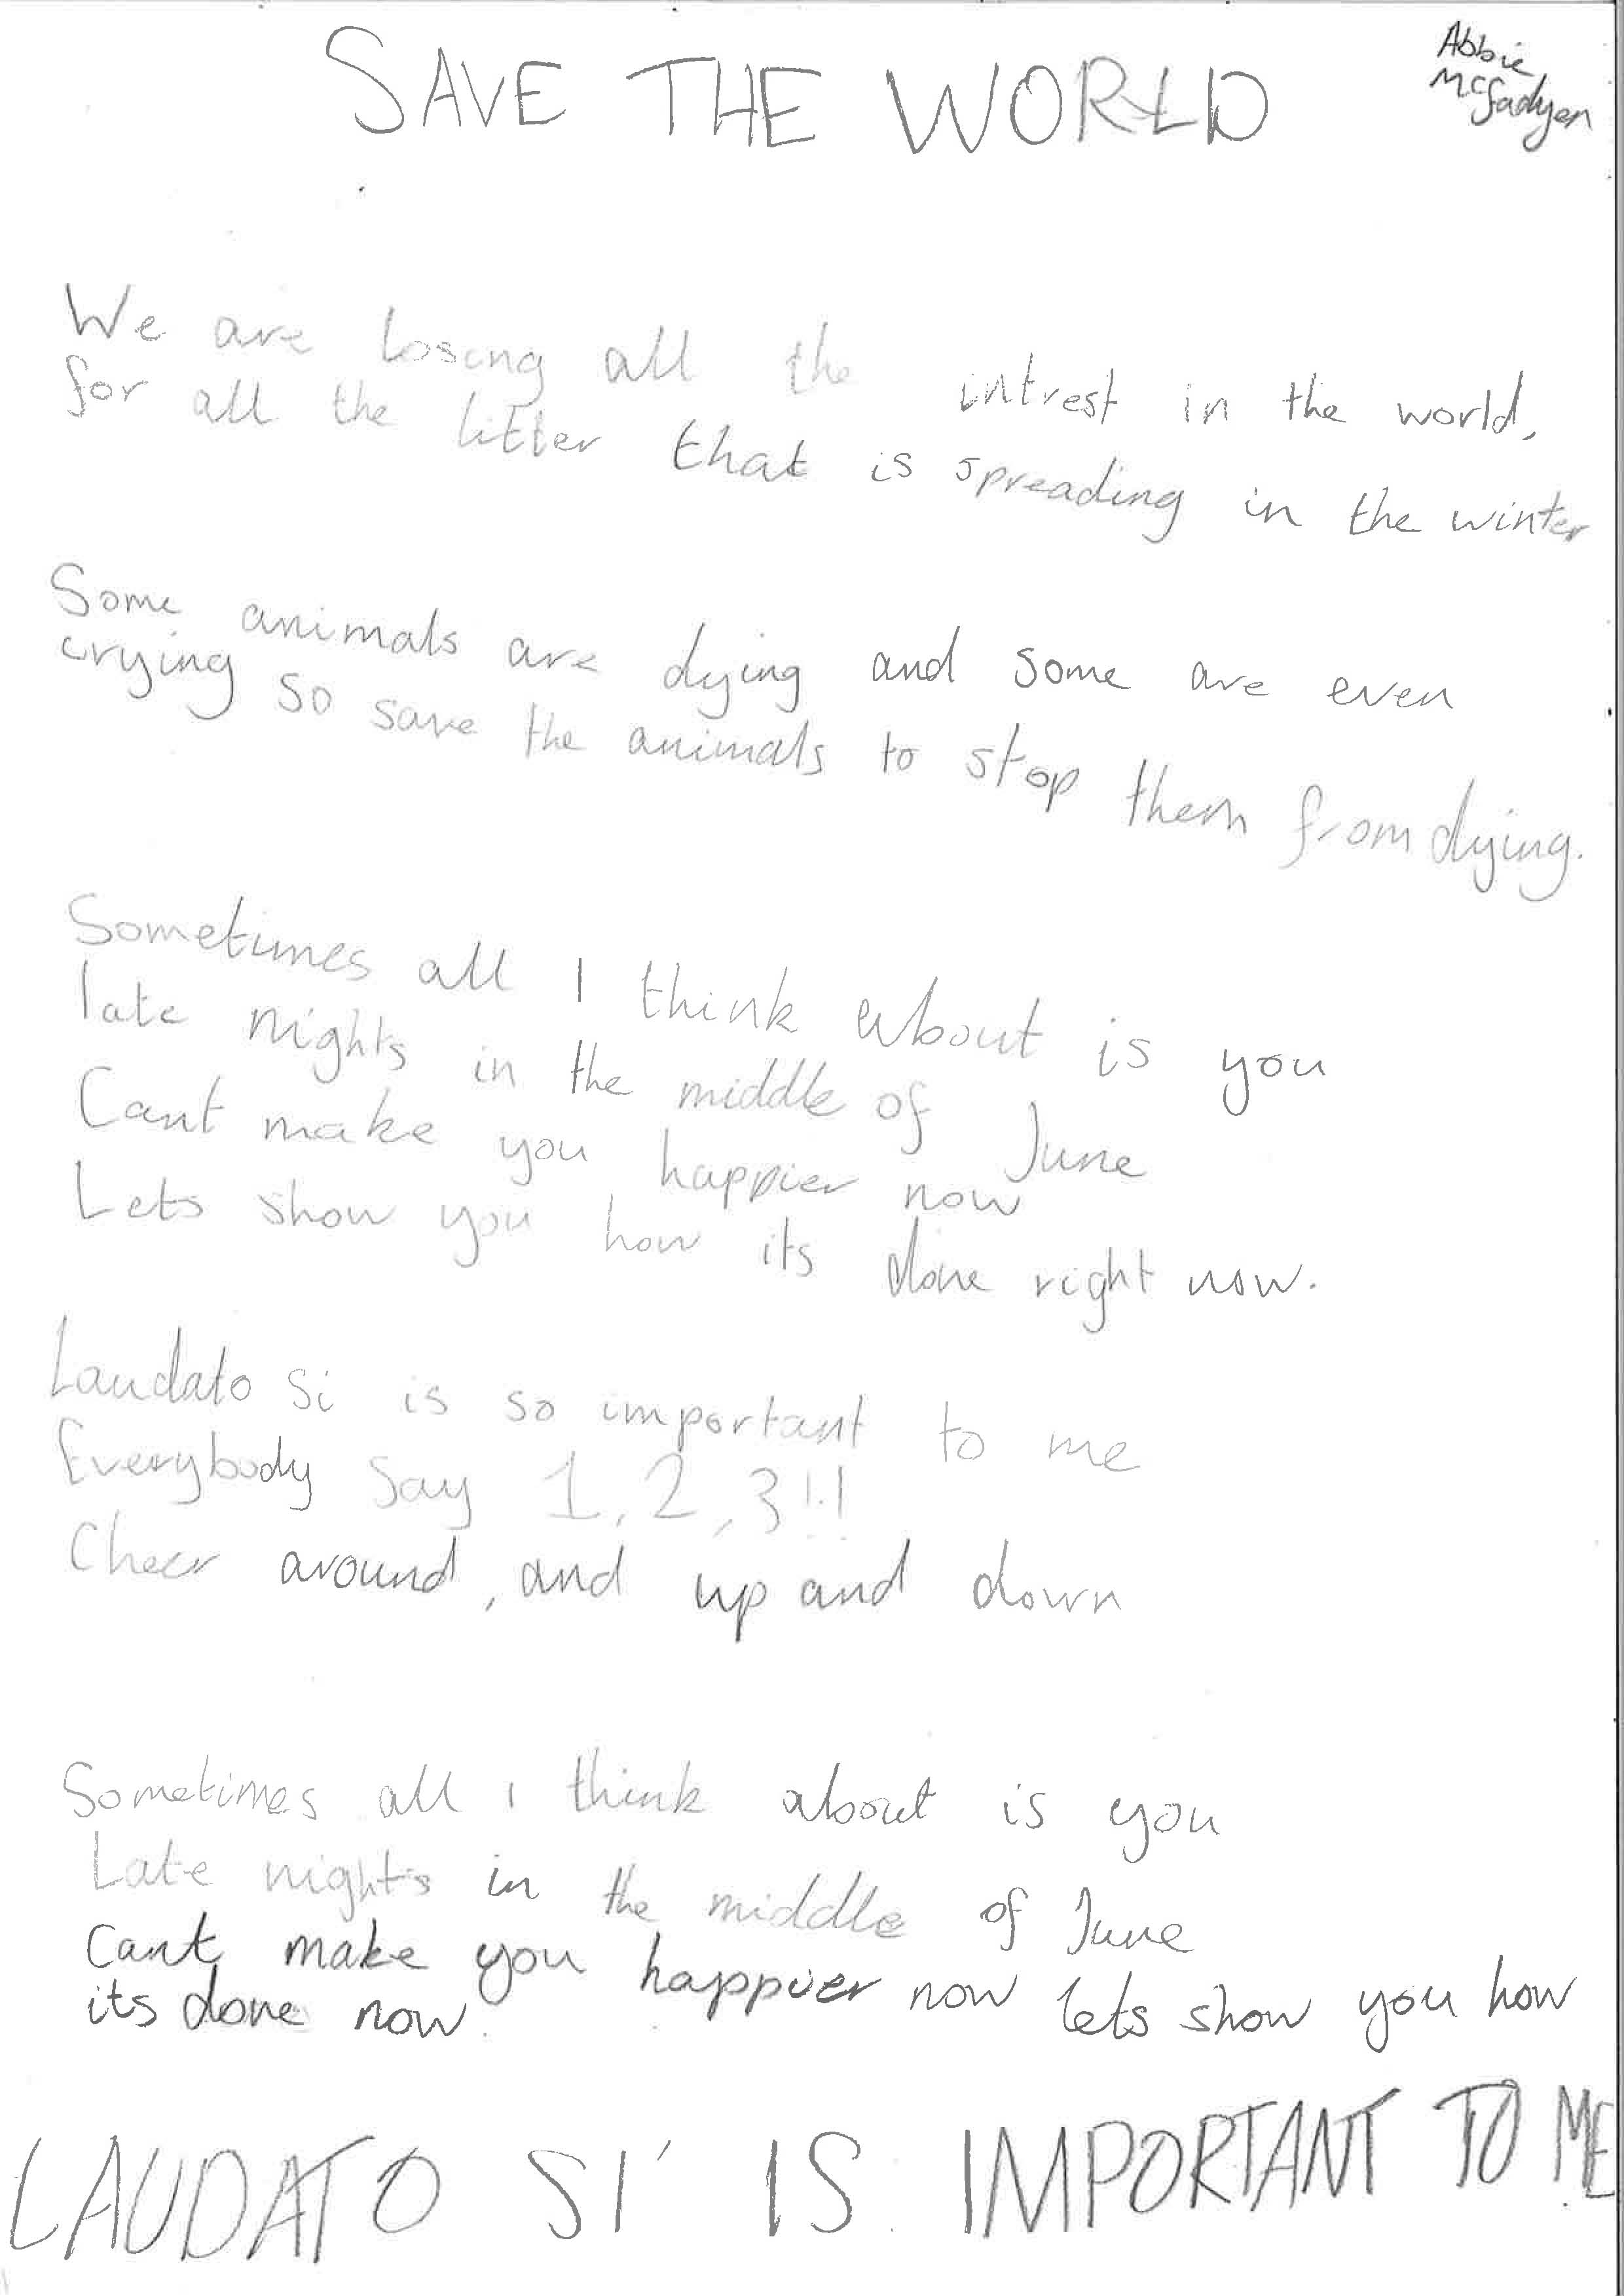 SAVE THE WORLD
Abbie
McFadyen
We are losing all the intrest in the world,
for all the litter that is spreading in the winter
Some animals are dying and some are even
crying so save the animals to stop them from dying.
Sometimes all I think about is you
late nights in the middle of June
Cant make you happier now
Lets show you how its done right now.
Laudato Si is so important to me
Everybody Say 1, 2, 3!!!
Cheer around, and up and down
Sometimes all I think about is you
Late nights in the middle of June
Cant make you happier now lets show you how
its done now.
LAUDATO SI' IS IMPORTANT TO ME